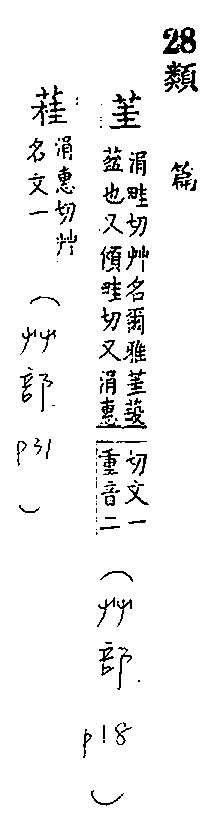 28類篇
茥 涓畦切艸名爾雅茥蒛
葐也又傾畦切又涓惠
切文一
重音二
(艸部 p18)
蓕 涓惠切艸
名文一
(艸部 p31)